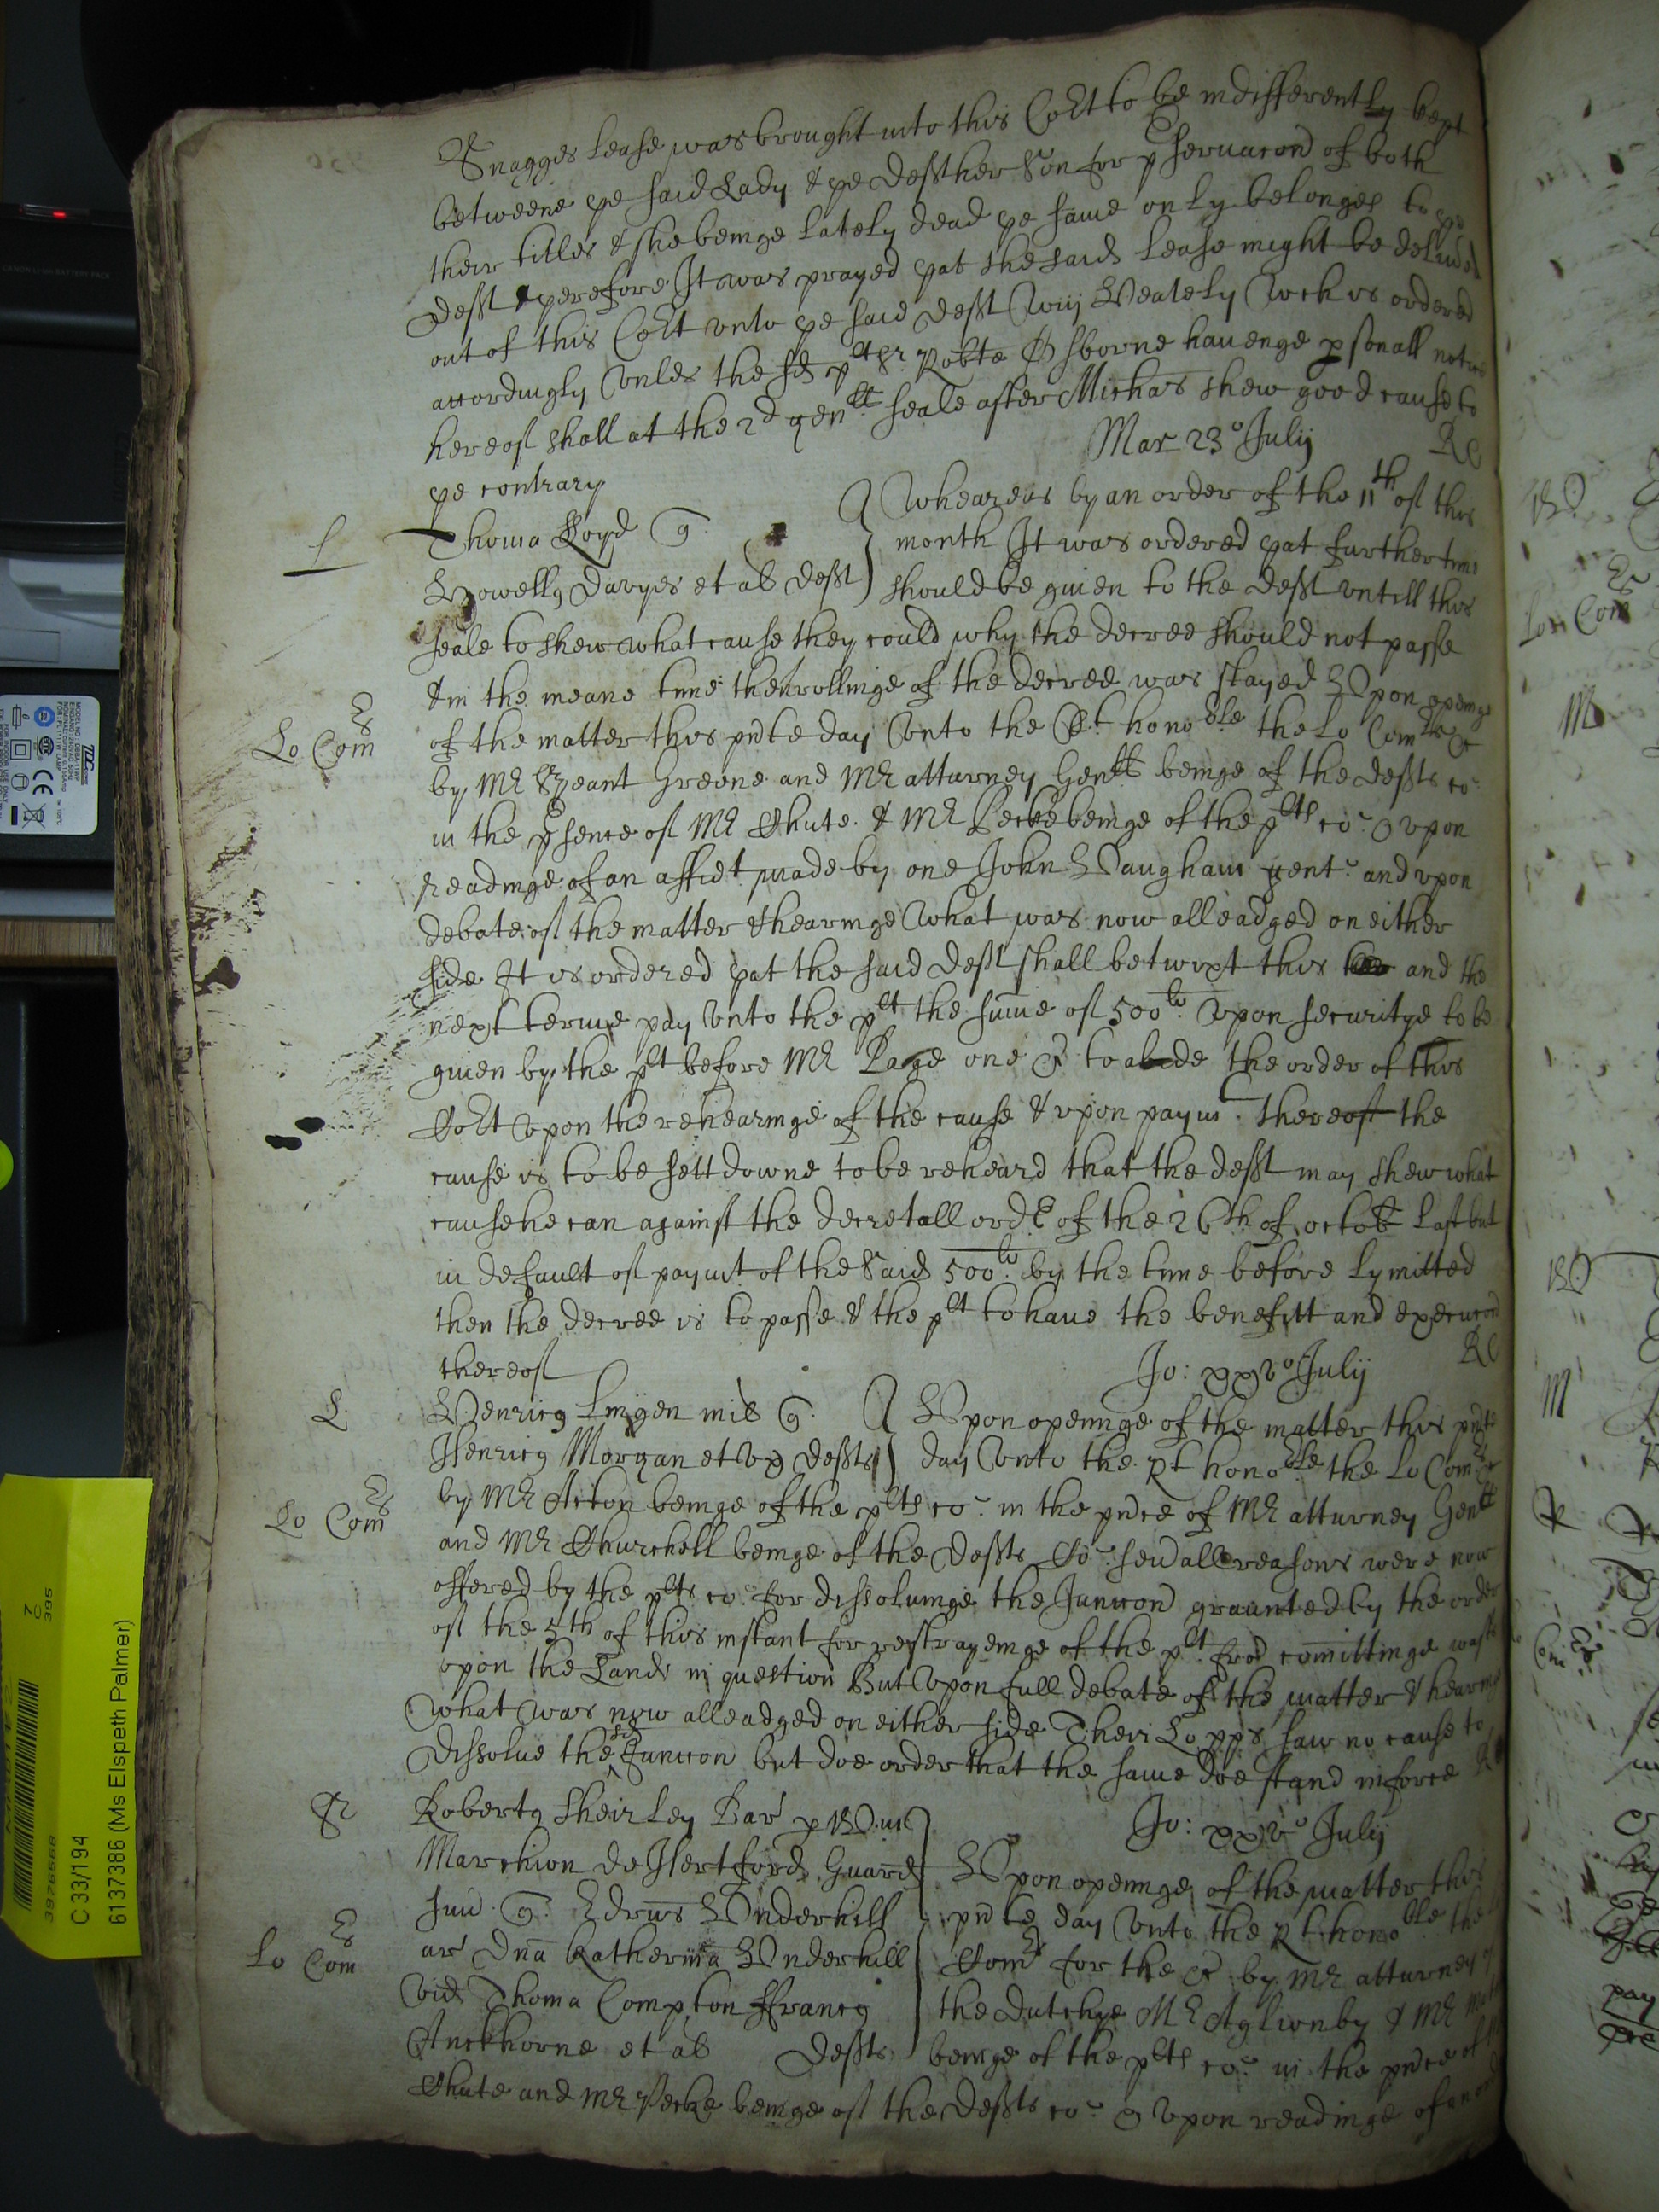 Snagges lease was brought into this Cort to be indifferently kept
betweene ye said Lady & ye Deft her Son for pservacon of both
their titles & she beinge lately dead ye same only belonges to ye
Deft & yerefore It was prayed yat the said lease might be delived
out of this Cort unto ye said Deft Wm Weately wch is ordered
accordingly unles the sd plt Sr Robte Osborne havenge psonall notice
hereof shall at the 2d genll seale after Michas shew good cause to
ye contrary
Mar 23o Julij
RC
L
Thoma Loyd q
Howellq Davyes et al Deft
Wheareas by an order of the 11th of this
month It was ordered yat further time
should be given to the Deft untill this
seale to shew what cause they could why the decree should not passe
& in the meane time thenrollinge of the decree was stayed Upon openinge
Lo Comrs
of the matter this pnte day unto the Rt honoble the Lo Comrs &c
by Mr Sjeant Greene and Mr atturney Genll beinge of the Defts co
in the psence of Mr Chute & Mr Pecke beinge of the plts co & upon
readinge of an affidt made by one John Vaugham gent and upon
debate of the matter & hearinge what was now alleadged on either
side It is ordered yat the said Deft shall betwixt this and the
next terme pay unto the plt the sume of 500li upon securitye to be
given by the plt before Mr Page one &c to abide the order of this
Cort upon the rehearinge of the cause & upon paymt thereof the
cause is to be sett downe to be reheard that the deft may shew what
cause he can against the decretall ordr of the 26th of octob last but
in default of paymt of the said 500li by the time before lymitted
then the decree is to passe & the plt to have the benefitt and execucon
thereof
Jo: xxvo Julij
RC
L
Henricq Lingen mil q
Henricq Morgan et ux Defts
Upon openinge of the matter this pnte
day unto the Rt honoble the Lo Comrs &c
Lo Comrs
by Mr Acton beinge of the plts co in the pnce of Mr atturney Genll
and Mr Churchill beinge of the Defts Co sevall reasons were now
offered by the plts co for dissolvinge the Juncon graunted by the order
of the 5th of this instant for restrayeinge of the plt from comittinge waste
upon the Lands in question But upon full debate of the matter & hearinge
what was now alleadged on either side Their Lopps saw no cause to
Dissolve the sd Juncon but doe order that the same doe stand in force R
Jo: xxvo Julij
Robertq Sheirley Bar p Willm
Marchion de Hertford Guard
suu q Edrus Underhill
ar Dna Katherina Underhill
vid Thoma Compton ffrancq
Anckhorne et al Defts
Lo Comrs
Upon openinge of the matter this
pnte day unto the Rt honoble the
Comrs for the &c by Mr atturney of
the Dutchye Mr Aglionby & Mr
beinge of the plts co in the pnce of
Chute and Mr Pecke beinge of the Defts co & upon readinge of an
C 33/194
6137386 (Ms Elspeth Palmer)